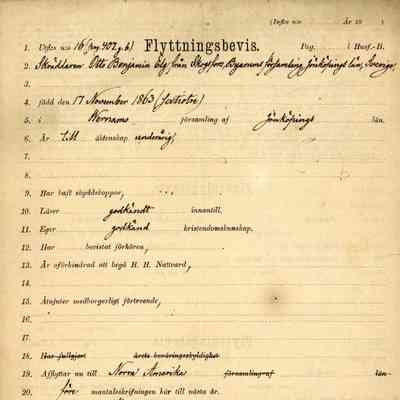 (Deſſes n:o År 19 )
1. Deſſes n:o 16 (pag. 407 g. b) Flyttningsbevis. Pag. i Husf.-B.
2. Skräddaren Otto Benjamin Elg, från Skogsfors, Byarums församling, Jönköpings län, Sverige,
3.
4. född den 17 November 1863 (sextiotre)
5. i Wernamo församling af Jönköpings län.
6. Är till äktenskap
7.
8.
9. Har haft skyddskoppor,
10. Läser godkändt innantill.
11. Eger godkänd kristendomskunskap.
12. Har bevistat förhören,
13. Är oförhindrad att begå H. H. Nattvard,
14.
15. Åtnjuter medborgerligt förtroende,
16.
17.
18. Har fullgjort årets beväringsskyldighet
19. Afflyttar nu till Norra Amerika församling af län
20. före mantalsskrifningen här till nästa år.